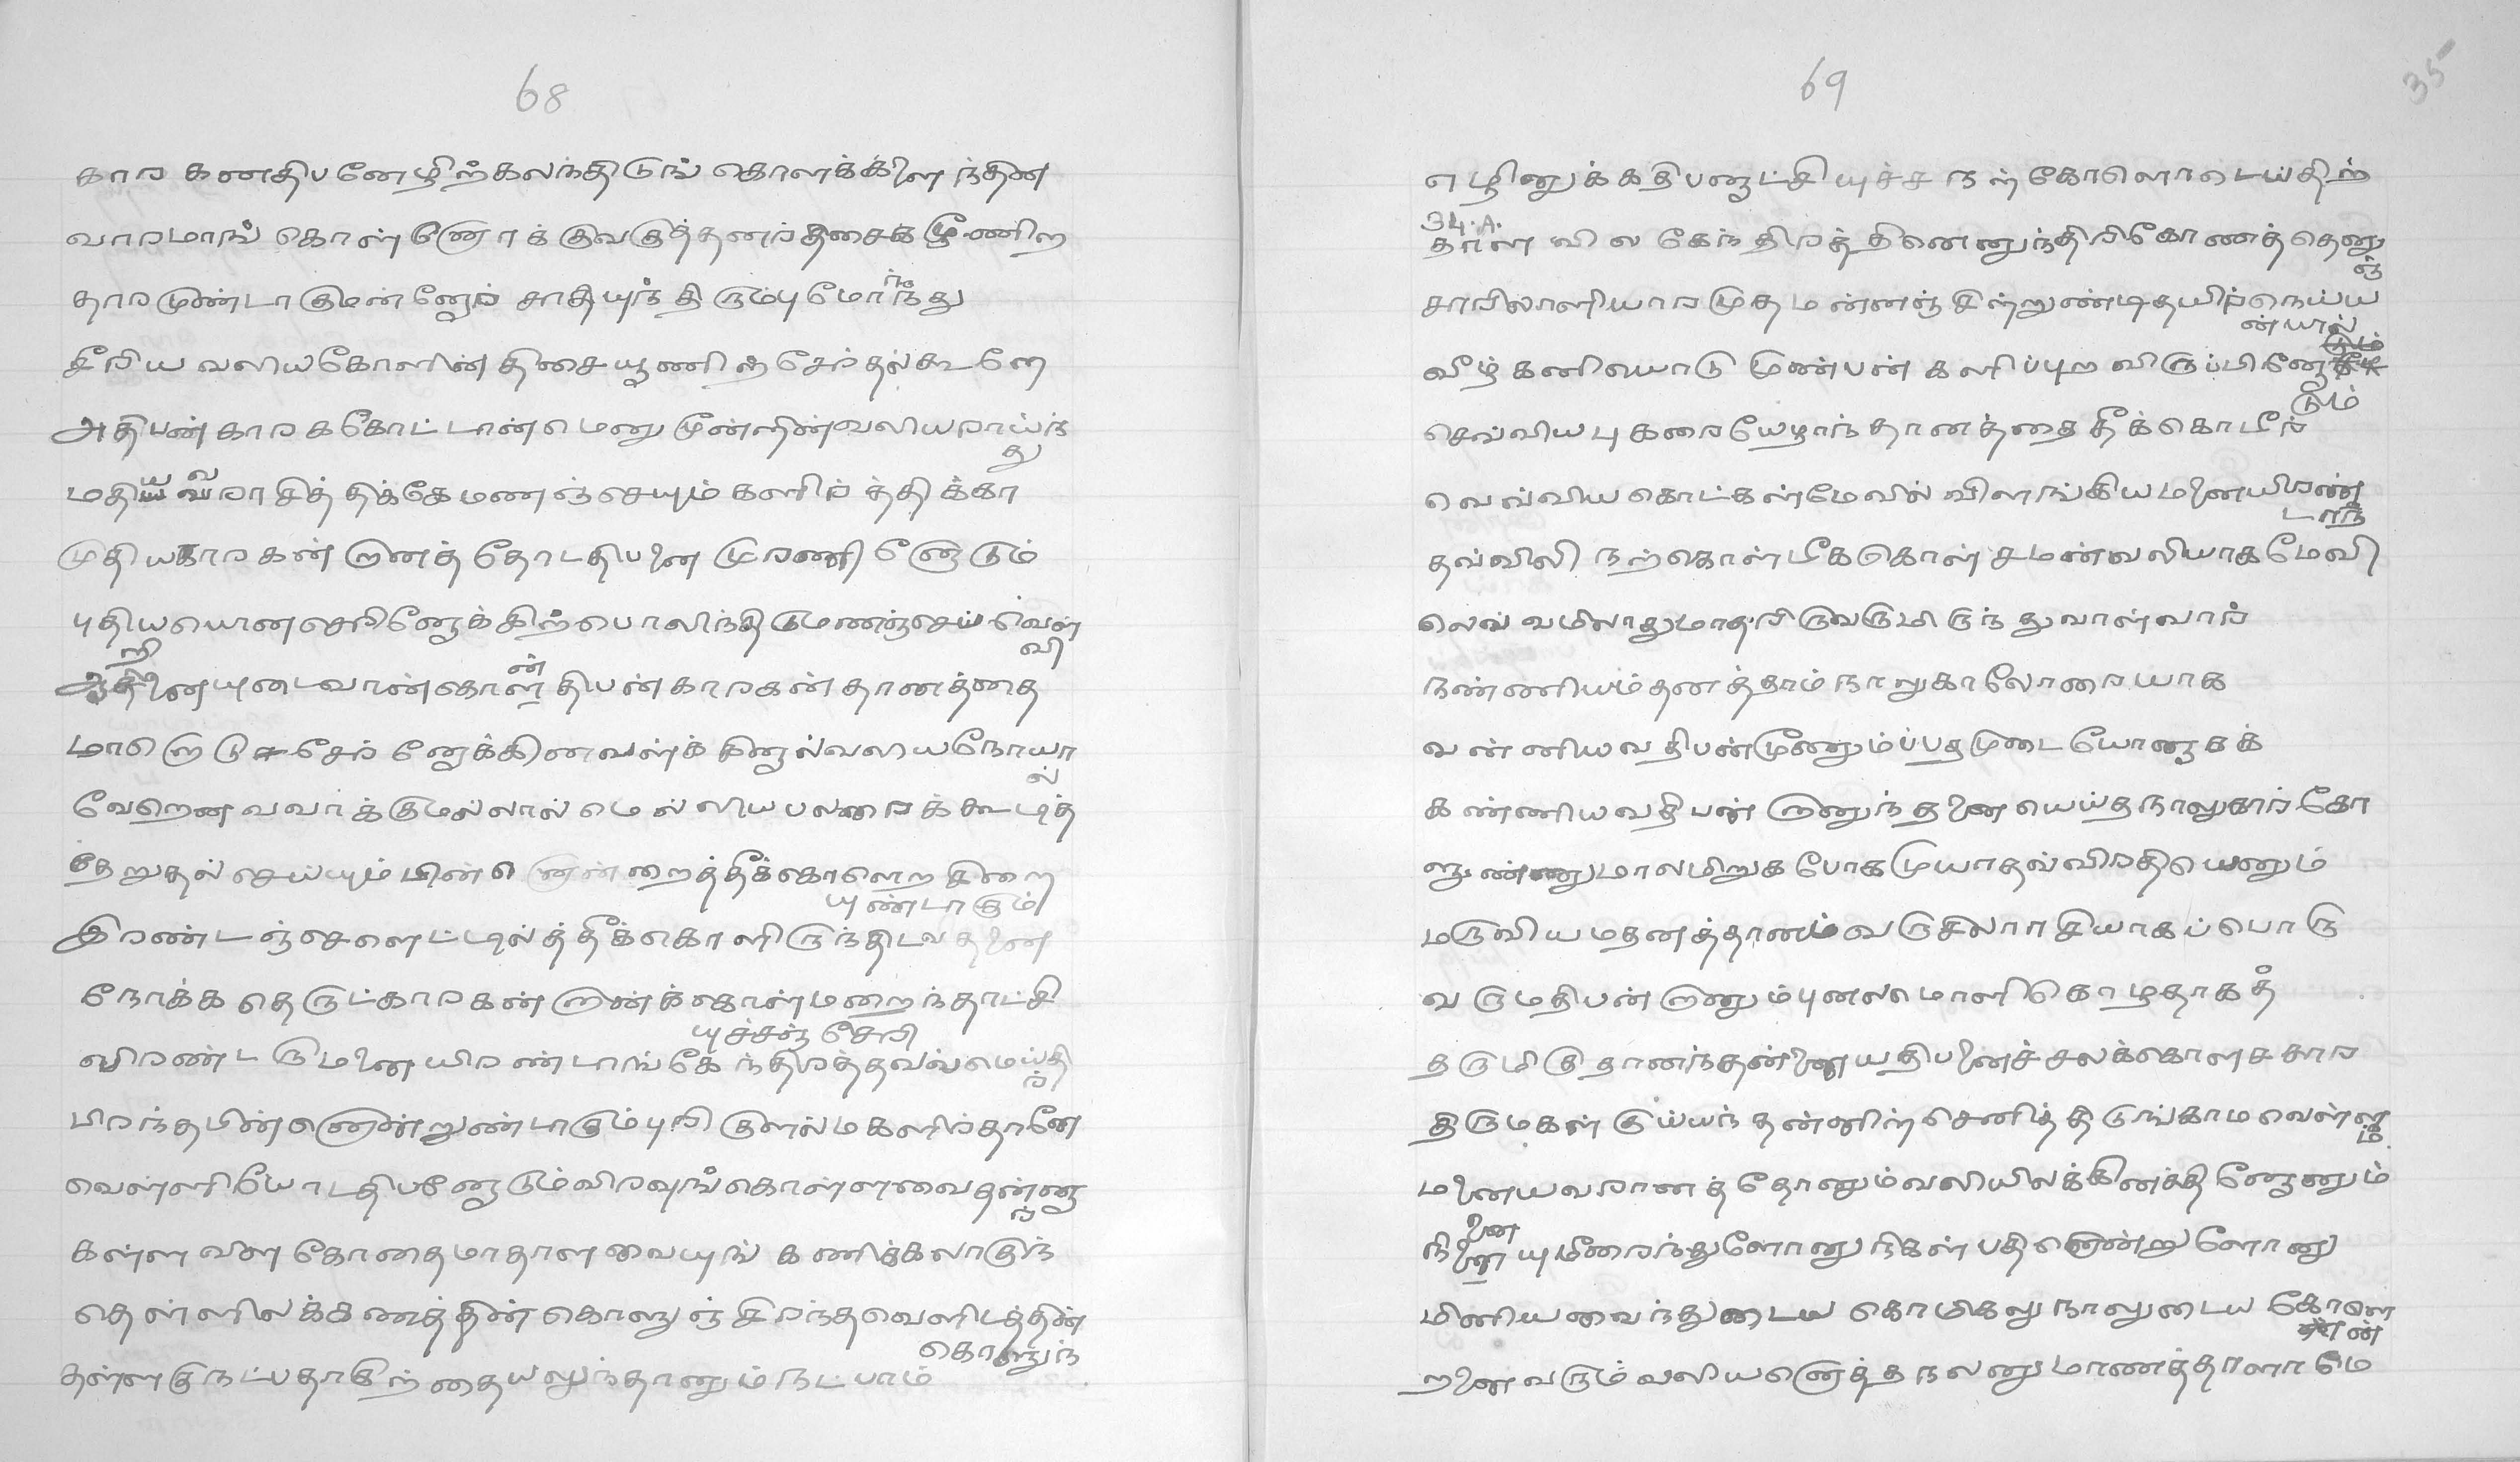 68
காரகனதிபனேழிற்கலந்திடுங் கொளக்கிளந்தின
வாரமாங் கொள்ளோக்குவகுத்தனர்திசைக்மூணிற
தாரமுண்டாகுமன்னேர் சாதியுந் திரும்புமோர்ந்து
சீரிய வலியகோளின் திசையூணிற் சேர்தல்கூளே
அதிபன் காரககோட்டான்மெனு மூன்ளின்வலியராய்ந்
து
மதியவராசித் திக்கேமணஞ்செயும் களிர்த்திக்கா
முதியகாரகன்றனத்தோடதிபனை முரணிளேடும்
புதியயொனசெரினேக்கிற்பொலிந்திடுமணஞ்செய்வென்
வி
அதினையுடைவான்கொள்தியன்காரகன்தானத்தை
மாளெடு சேர்னேக்கினவள்க் கினுல்வலியநோயா
ல்
வேறெனவவர்க்குமல்லால்மெல்லியபலரைக்கூடித்
தேறுதல்செய்யும்பின்னென்றைத்தீக்கொளெறகிறை
யுண்டாகும்
இரண்டஞ்செளெட்டில்த்தீக்கொளிருந்திடவதனை
நோக்க தெருட்காரகன்றன்க்கொள்மறைந்தாட்சி
யுச்சஞ்சேரி
விரண்டகுமனையிரண்டாங்கேந்திரத்தவவ்மெய்தி
ர்
பிரந்தபின்னென்றுண்டாகும்புரிகுளல்மகளிர்தானே
வெள்ளியோடதிபனேடும்விரவுங்கொள்ளவைதன்னு
ர்
கள்ளவிள கோதைமாதாளவையுங் கணிக்கலாகுந்
தெள்ளிலக்கணத்தின்கொளுஞ்சிரந்தவெளிடத்தின்
கொளுந்
தள்ளகுநட்பதாகிற்தையலுந்தானும்நட்பாம்
69
35
எழினுக்கதிபனுட்சியுச்சநள்கோளொடெய்திற்
34.A.
தாளவில கேந்திரத்தினெனுந்திரிகோணத்தெனு
ஞ்
சாரிலாளியாரமுதமன்னஞ்சின்றுண்டிதயிர்நெய்ய
ன்யால்
வீழ்கனிவொடு முண்பன் களிப்புற விருப்பினே
டும்
செவ்வியபுகரையேழாந்தானத்தை தீக்கொமீர்
வெவ்வியகொட்கள்மேவில் விளங்கியமனையிரண்
டாந்
தவ்விலி நற்கொள்மீககொள்சமன்வலியாகமேவி
லெவ்வமிலாதுமாதரிருவருமிருந்துவாள்வார்
நண்ணியம்தனத்தாம்நாறுகாலோரையாக
வன்னியவதிபன்மூனும்ப்பதமுடையோனுகக்
கண்ணியவதிபன்றனுந்தனையெய்தநாலுகார்கோ
ளுண்ணுமாலமிறுகபோகமுயாதல்விரதியெனும்
மருவியமதனத்தானம்வருசிலாரசியாகப்பொரு
வருமதிபன்றனும்புனலமொளிகொழதாகத்
தருமிகுதானந்தன்னையதிபனைச்சலக்கொளசசார
திருமகள்குய்யந்தன்னிற்செனித்திடுங்காமவெள்ள
ம்
மனையவரானத்தோனும்வலியிலக்கினத்தினேனும்
னை
நினையுமீரைந்துளோனுநிகள்பதினென்றுளோனு
மினியவைந்துடைய கொமிகலுநாலுடைய கோளெ
ன்
றனைவரும்வலியளெத்தநலனுமாணத்தாளாமே